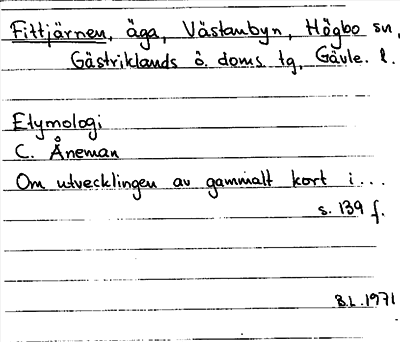 Fittjärnen, äga, Västanbyn, Högbo sn,
Gästriklands ö. doms. tg, Gävle. l.
Etymologi
C. Åneman
Om utvecklingen av gammalt kort i...
s. 139 f.
B.L. 1971